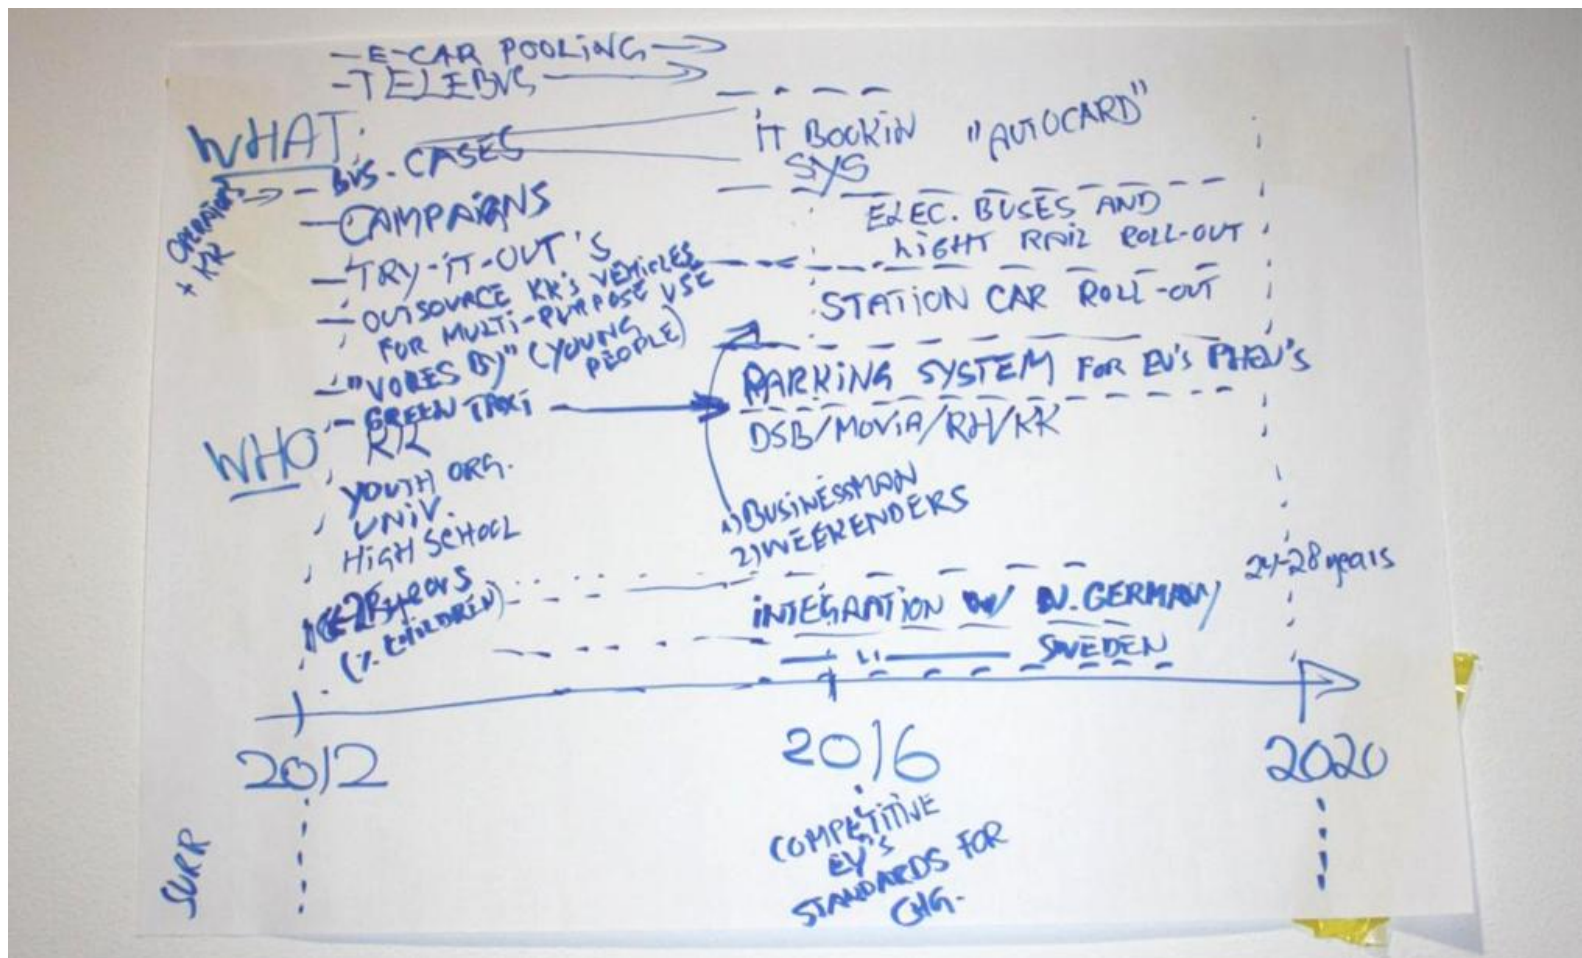 - E-CAR POOLING
- TELEBUS
WHAT:
OPERATORS
+ KK
- BUS. CASES
- CAMPAIGNS
- TRY-IT-OUT'S
- OUTSOURCE KK'S VEHICLES
FOR MULTI-PURPOSE USE
- "VORES BY" (YOUNG
PEOPLE)
- GREEN TAXI
WHO
KK
YOUTH ORG.
UNIV.
HIGH SCHOOL
years
(% CHILDREN)
IT BOOKIN "AUTOCARD"
SYS
ELEC. BUSES AND
LIGHT RAIL ROLL-OUT
STATION CAR ROLL-OUT
PARKING SYSTEM FOR EV'S PHEV'S
DSB/MOVIA/RH/KK
1) BUSINESSMAN
2) WEEKENDERS
24-28 years
INTEGRATION W/ N. GERMANY
— " — SWEDEN
2012
2016
2020
SURR
COMPETITIVE
EV'S
STANDARDS FOR
CHG.